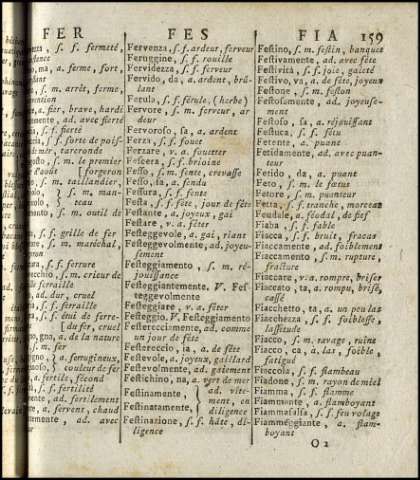 FER FES FIA 159
, s. f. fermeté,
na, a. ferme, fort,
s. m. arrêt, ferme,
a. fier, brave, hardi
ad. avec fierté
s. f. fierté
s. le premier
[forgeron
s. m. taillandier,
s. m. man-
teau
s. m. outil de
s. f. grille de fer
s. m. maréchal,
s. f. ferrure
s. m. crieur de
ferraille
ad. dur, cruel
s. f. ferraille
s. f. étui de ferre-
[du fer, cruel
a. de la nature
a. ferrugineux,
couleur de fer
a. fertile, fécond
s. f. fertilité
ad. fortement
a. fervent, chaud
ad. avec
Fervenza, s. f. ardeur, ferveur
Feruggine, s. f. rouille
Fervidezza, s. f. ferveur
Fervido, da, a. ardent, brû-
lant
Ferula, s. f. férule, (herbe)
Fervore, s. m. ferveur, ar
deur
Fervoroso, sa, a. ardent
Ferza, s. f. fouet
Ferzare, v. a. fouetter
Fescera, s. f. brioine
Fesso, s. m. fente, crevasse
Fesso, sa, a. fendu
Fessura, s. f. fente
Festa, s. f. fête, jour de fête
Festante, a. joyeux, gai
Festare, v. a. fêter
Festeggevole, a. gai, riant
Festeggevolmente, ad. joyeu-
sement
Festeggiamento, s. m. ré-
jouissance
Festeggiantemente. V. Fes-
teggevolmente
Festeggiare, v. a. fêter
Festeggio. V. Festeggiamento
Festerecciamente, ad. comme
un jour de fête
Festereccio, ia, a. de fête
Festevole, a. joyeux, gaillard
Festevolmente, ad. gaiement
Festichino, na, a. vert de mer
Festinamente, } ad. vîte-
ment, en
Festinatamente, } diligence
Festinazione, s. f. hâte, di-
ligence
Festino, s. m. festin, banquet
Festivamente, ad. avec fête
Festività, s. f. joie, gaieté
Festivo, va, a. de fête, joyeux
Festone, s. m. feston
Festosamente, ad. joyeuse-
ment
Festoso, sa, a. réjouissant
Festuca, s. f. fétu
Fetente, a. puant
Fetidamente, ad. avec puan-
teur
Fetido, da, a. puant
Feto, s. m. le fœtus
Fetore, s. m. puanteur
Fetta, s. f. tranche, morceau
Feudale, a. féodal, de fief
Fiaba, s. f. fable
Fiacca, s. f. bruit, fracas
Fiaccamente, ad. foiblement
Fiaccamento, s. m. rupture,
fracture
Fiaccare, v. a. rompre, briser
Fiaccato, ta, a. rompu, brisé,
cassé
Fiacchetto, ta, a. un peu las
Fiacchezza, s. f. foiblesse,
lassitude
Fiacco, s. m. ravage, ruine
Fiacco, ca, a. las, foible,
fatigué
Fiaccola, s. f. flambeau
Fiadone, s. m. rayon de miel
Fiamma, s. f. flamme
Fiammante, a. flambant
Fiammasalsa, s. f. feu volage
Fiammeggiante, a. flam-
boyant
O 2